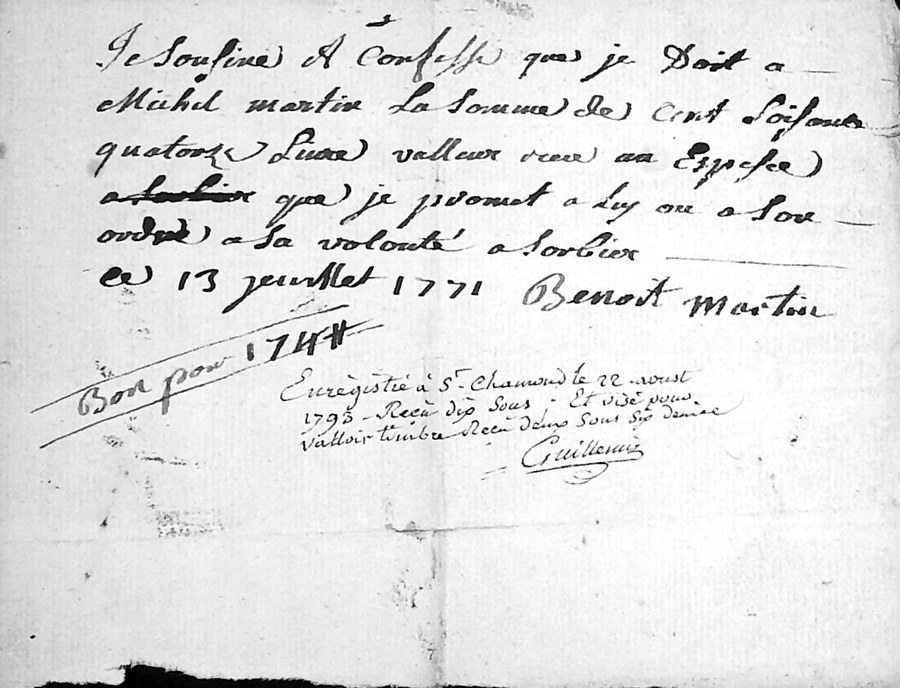 Je Sousine Et Confesse que je Doit a
Michel martin La Somme de cent Soisante
quatorze Livre valleur recu an Espesse
a Sorbier que je promet a Luy ou a Son
ordre a Sa volonté a Sorbier
ce 13 jeuillet 1771 Benoit Martin
Bon pour 174 ₶
Enregistré à St. Chamond le 22 aoust
1793 - Reçu dix Sous - Et visé pour
valloir timbre Reçu deux Sous Six denier
Guillemin